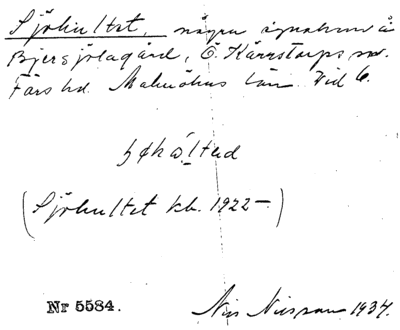 Sjöhultet, några ägnahem å
Bjersjölagård, Ö. Kärrstorps sn.
Färs hd. Malmöhus län. Vid 6.
(Sjöhultet kb. 1922-)
Nr 5584. Nils Nilsson 1934.